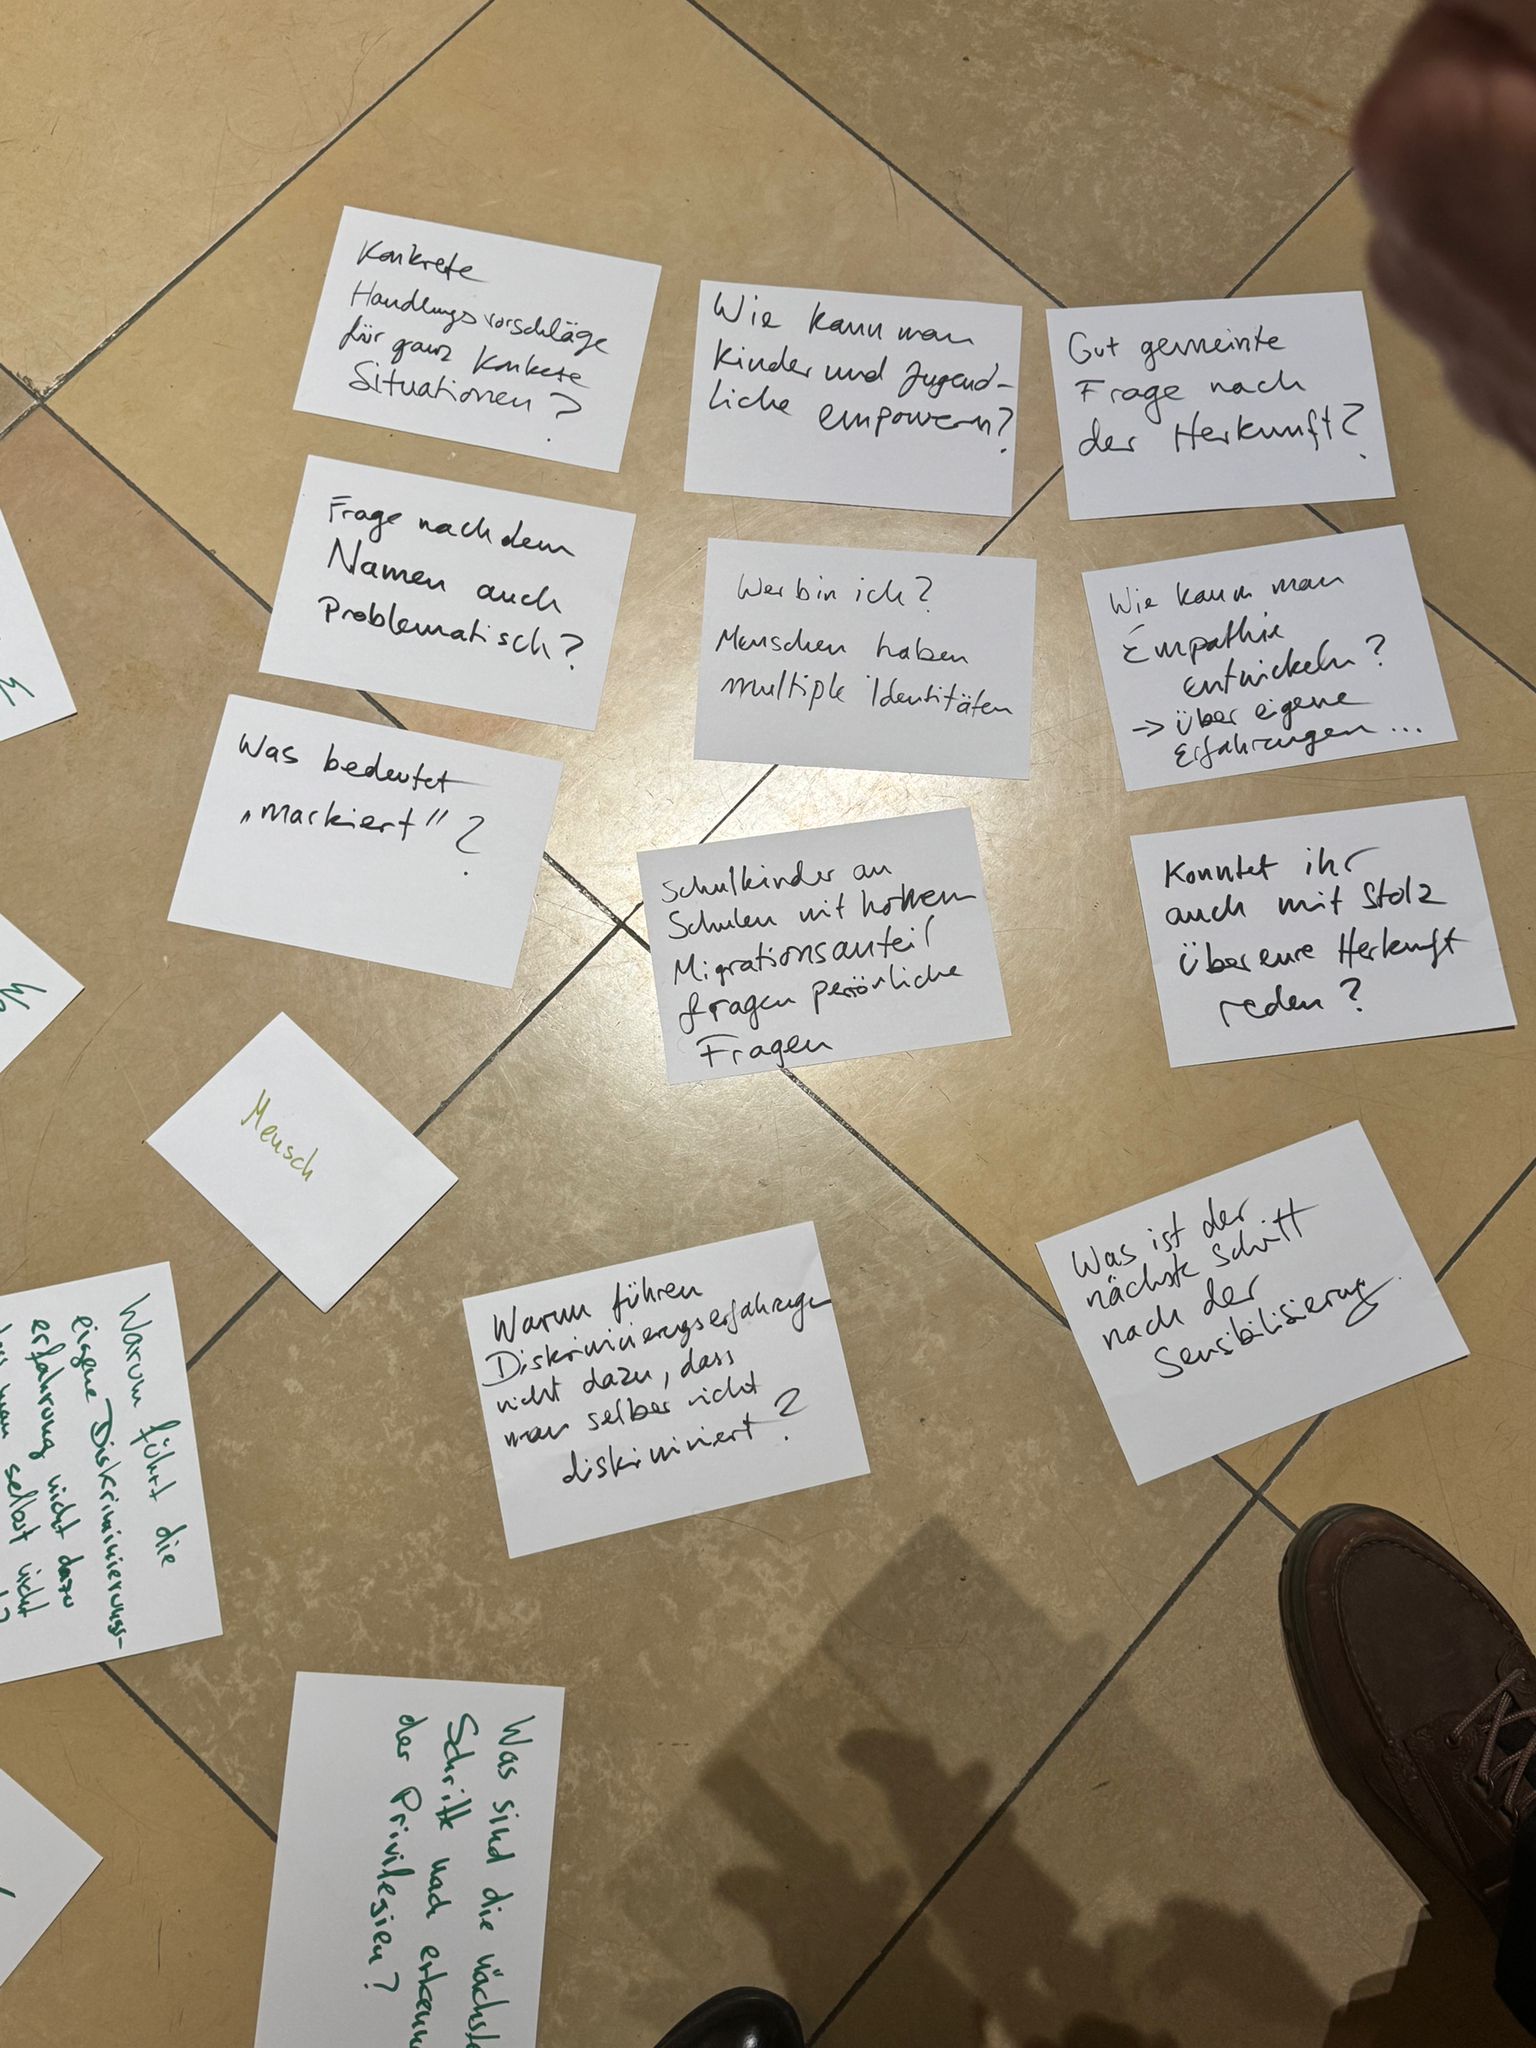 Konkrete
Handlungsvorschläge
für ganz konkrete
Situationen?
Wie kann man
Kinder und Jugend-
liche empowern?
Gut gemeinte
Frage nach
der Herkunft?
Frage nach dem
Namen auch
Problematisch?
Wer bin ich?
Menschen haben
multiple Identitäten
Wie kann man
Empathie
entwickeln?
→ über eigene
Erfahrungen...
Was bedeutet
„markiert"?
Schulkinder an
Schulen mit hohem
Migrationsanteil
fragen persönliche
Fragen
Konntet ihr
auch mit Stolz
über eure Herkunft
reden?
Mensch
Warum führen
Diskriminierungserfahrungen
nicht dazu, dass
man selber nicht
diskriminiert?
Was ist der
nächste Schritt
nach der
Sensibilisierung
Warum führt die
eigene Diskriminierungs-
erfahrung nicht dazu
man selbst nicht
Was sind die nächste
Schritte nach
der Privilegien?